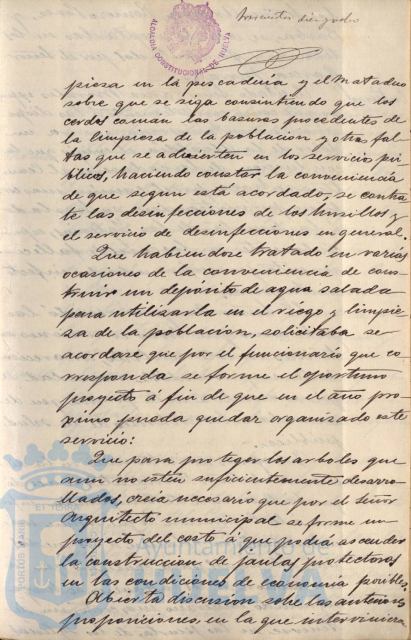 Trescientos diez y ocho
ALCALDIA CONSTITUCIONAL DE HUELVA
pieza en la pescadería y el Matadero
sobre que se siga consintiendo que los
cerdos coman las basuras procedentes de
la limpieza de la poblacion y otras fal-
tas que se advierten en los servicios pú-
blicos, haciendo constar la conveniencia
de que segun está acordado, se contra-
te las desinfecciones de los husillos y
el servicio de desinfecciones en general.
Que habiendose tratado en varias
ocasiones de la conveniencia de cons-
truir un depósito de agua salada
para utilizarla en el riego y limpie-
za de la poblacion, solicitaba se
acordase que por el funcionario que co-
rresponda se forme el oportuno
proyecto á fin de que en el año pro-
ximo pueda quedar organizado este
servicio:
Que para proteger los arboles que
aun no estén suficientemente desarro-
llados, creia necesario que por el señor
Arquitecto municipal se forme un
proyecto del costo á que podrá ascender
la construccion de jaulas protectoras
en las condiciones de economía posibles
Abierta discusion sobre las anteriores
proposiciones, en la que intervinieron
Ayuntamiento de
HUELVA